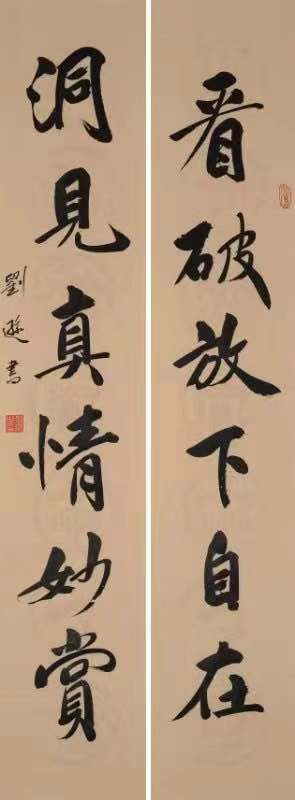 看破放下自在
洞見真情妙賞
劉遜書